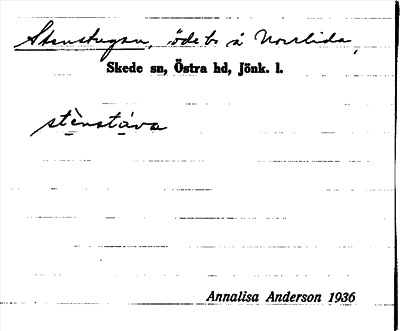 Stenstugan, ödeb. å Norrlida,
Skede sn, Östra hd, Jönk. l.
stènstáva
Annalisa Anderson 1936